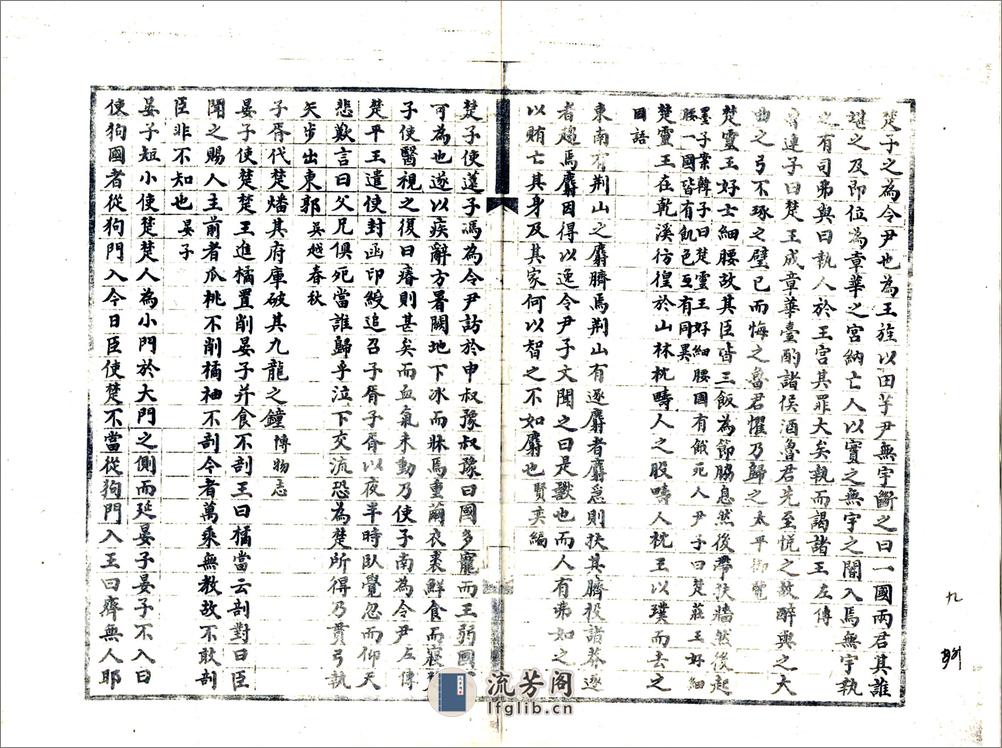 楚子之為令尹也為王旌以田芋尹無宇斷之曰一國兩君其誰
堪之及即位為章華之宮納亡人以實之無宇之閽入焉無宇執
之有司弗與曰執人於王宮其罪大矣執而謁諸王 左傳
魯連子曰楚王成章華臺酌諸侯酒魯君先至悅之故醉與之大
曲之弓不琢之璧已而悔之魯君懼乃歸之 太平御覽
楚靈王好士細腰故其臣皆三飯為節脇息然後帶扶牆然後起
墨子案韓子曰楚靈王好細腰國有餓死人尹子曰楚莊王好細
腰一國皆有飢色互有同異
楚靈王在乾溪彷徨於山林枕疇人之股疇人枕王以璞而去之
國語
東南有荆山之麝臍焉荆山有逐麝者麝急則扶其臍投諸莽逐
者趨焉麝因得以逸令尹子文聞之曰是獸也而人有弗如之
以賄亡其身及其家何以智之不如麝也 賢奕編
楚子使薳子馮為令尹訪於申叔豫叔豫曰國多寵而王弱國
可為也遂以疾辭方署闕地下冰而牀焉重繭衣裘鮮食而寢
子使醫視之復曰瘠則甚矣而血氣未動乃使子南為令尹 左傳
楚平王遣使封函印綬追召子胥子胥以夜半時臥覺忽而仰天
悲歎言曰父兄俱死當誰歸乎泣下交流恐為楚所得乃貫弓執
矢步出東郭 吳越春秋
子胥代楚燔其府庫破其九龍之鐘 博物志
晏子使楚楚王進橘置削晏子并食不剖王曰橘當云剖對曰臣
聞之賜人主前者瓜桃不削橘柚不剖令者萬乘無教故不敢剖
臣非不知也 晏子
晏子短小使楚楚人為小門於大門之側而延晏子晏子不入曰
使狗國者從狗門入今日臣使楚不當從狗門入王曰齊無人耶
九
流芳阁
lfglib.cn